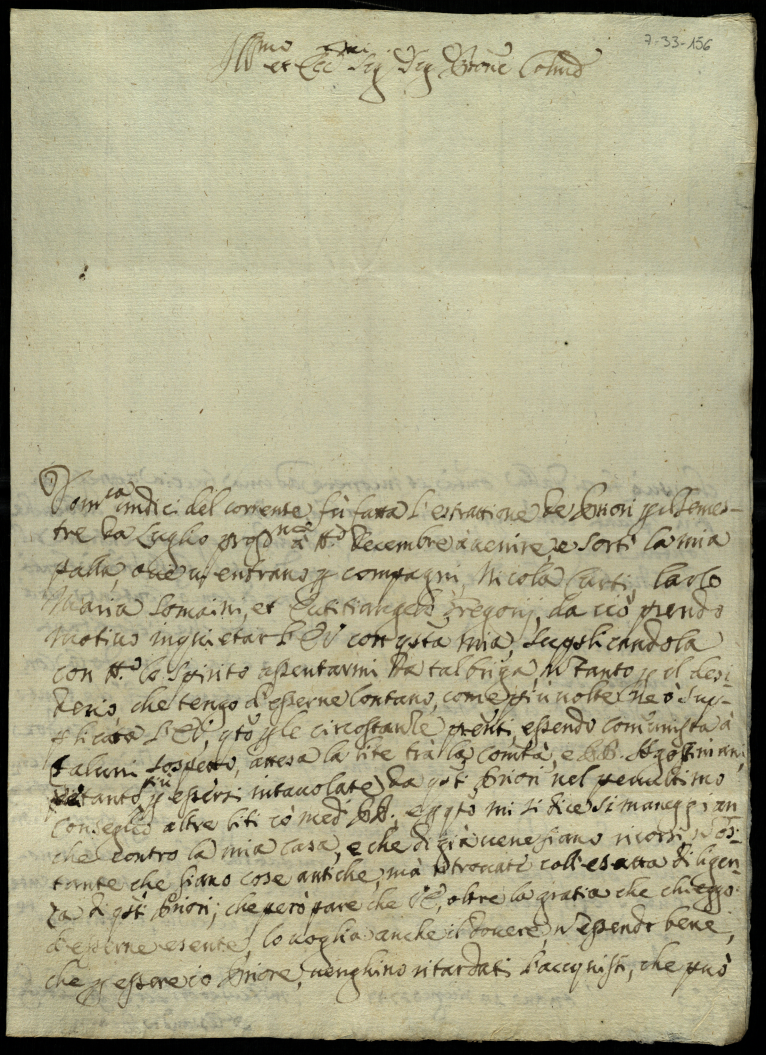 7-33-156
Ill.mo et Ecc.mo Sig. Sig. P̃rone Col.mo
Dom.ca undici del corrente fù fatta l'estrattione de Priori p il Semes-
tre da Luglio pross.mo à tt.o Decembre àvenire, e sorti la mia
palla, oue u' entrano p compagni, Nicola Curti, Carlo
Maria Somaini, et Gregorij, da ciò prendo
motiuo inquietar V. E. con q̃sta mia, Supplicandola
con tt.o lo Spirito esentarmi da tal briga, n̄ tanto p il desi-
derio che tengo d'esserne lontano, come più uolte ne ò sup-
plicata V. E., q̃to p le circostanze p̃nti, essendo com̃unista à
taluni sospetto, attesa la lite trà la Com̃tà, e PP. Agostiniani,
tanto più p essersi intauolate da q̃sti Priori nel penultimo
Conseglio altre liti cō med.i PP. e p q̃to mi si dice si maneggian
che contro la mia Casa, e che di già uene siano ricorsi, n̄ os-
tante che siano cose antiche, mà ritrouate coll'esatta diligen-
za di q̃sti Priori, che però pare che oltre la gratia che chieggo
d'esserne esente, lo uoglia anche il douere, n̄ essendo bene,
che p essere io Priore, uenghino ritardati l'acquisti, che può